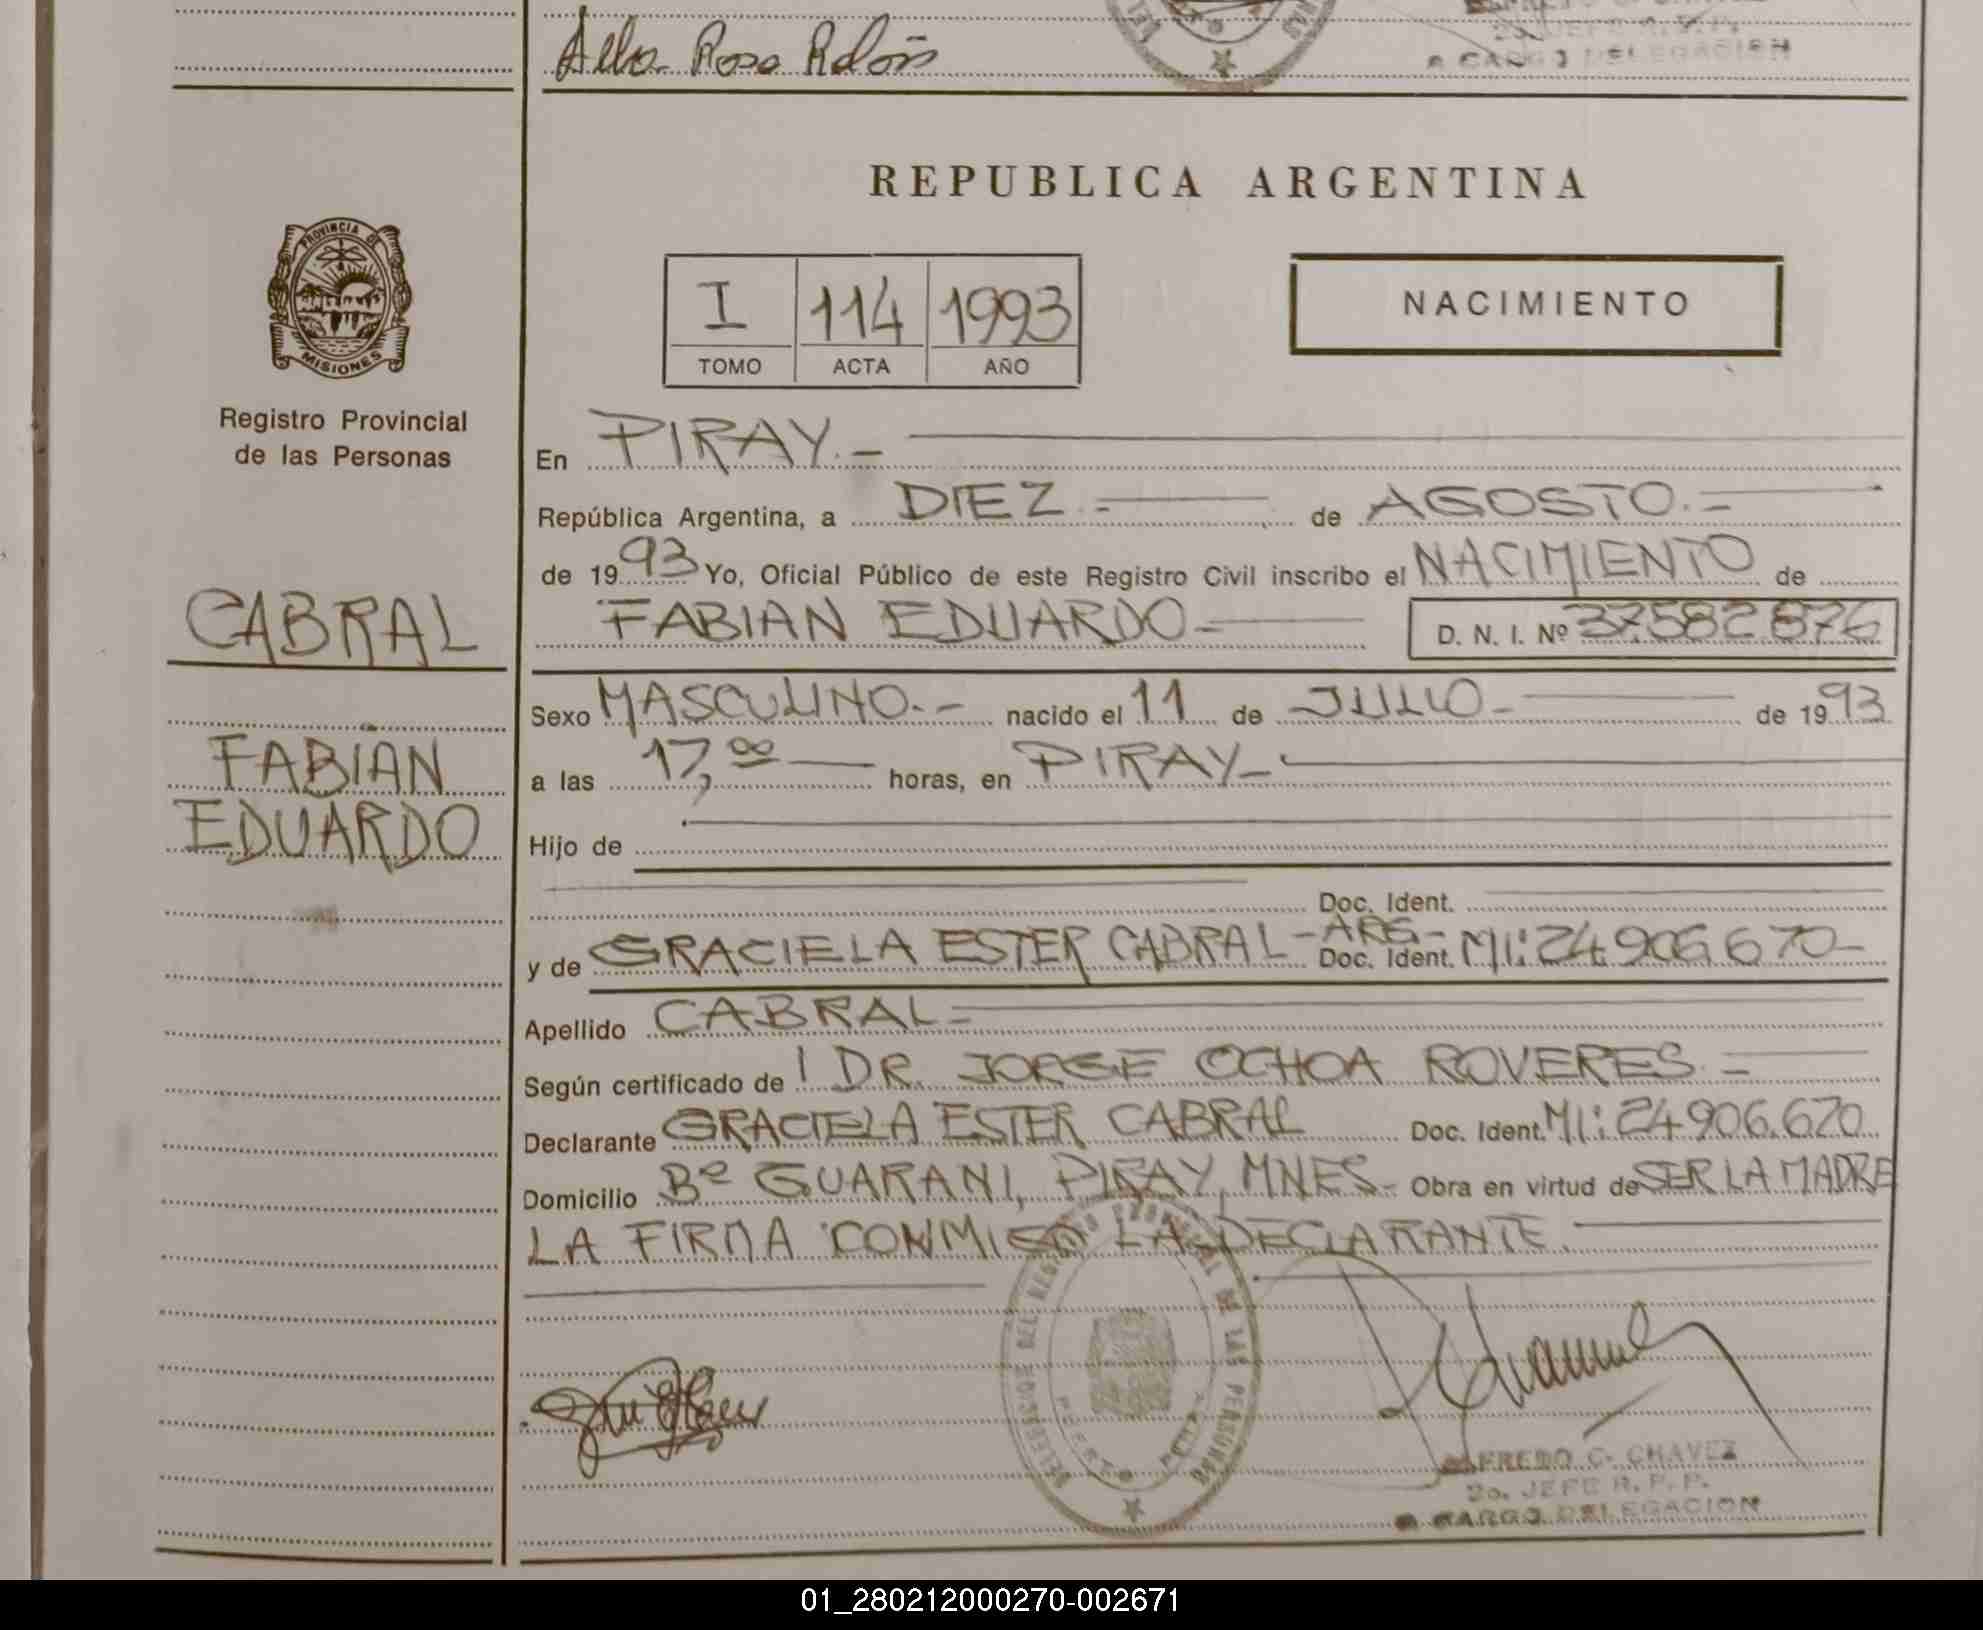 Alba Rosa
2o. JEFE R.P.P.
A CARGO DELEGACION
REPUBLICA ARGENTINA
PROVINCIA DE
MISIONES
Registro Provincial
de las Personas
I 114 1993
TOMO ACTA AÑO
NACIMIENTO
En PIRAY.-
República Argentina, a DIEZ.- de AGOSTO.-
de 1993 Yo, Oficial Público de este Registro Civil inscribo el NACIMIENTO de
FABIAN EDUARDO- D. N. I. Nº 37582876
CABRAL
Sexo MASCULINO.- nacido el 11 de JULIO- de 1993
FABIAN
a las 17,00 horas, en PIRAY-
EDUARDO
Hijo de
Doc. Ident.
y de GRACIELA ESTER CABRAL -ARG- Doc. Ident. MI:24.906.670-
Apellido CABRAL-
Según certificado de DR. JORGE OCHOA ROVERES.=
Declarante GRACIELA ESTER CABRAL Doc. Ident. MI:24.906.670
Domicilio Bº GUARANI, PIRAY, MNES- Obra en virtud de SER LA MADRE
LA FIRMA CONMIGO LA DECLARANTE.
DELEGACION DEL REGISTRO PROVINCIAL DE LAS PERSONAS
PUERTO PIRAY
ALFREDO C. CHAVEZ
2o. JEFE R.P.P.
A CARGO DELEGACION
01_280212000270-002671